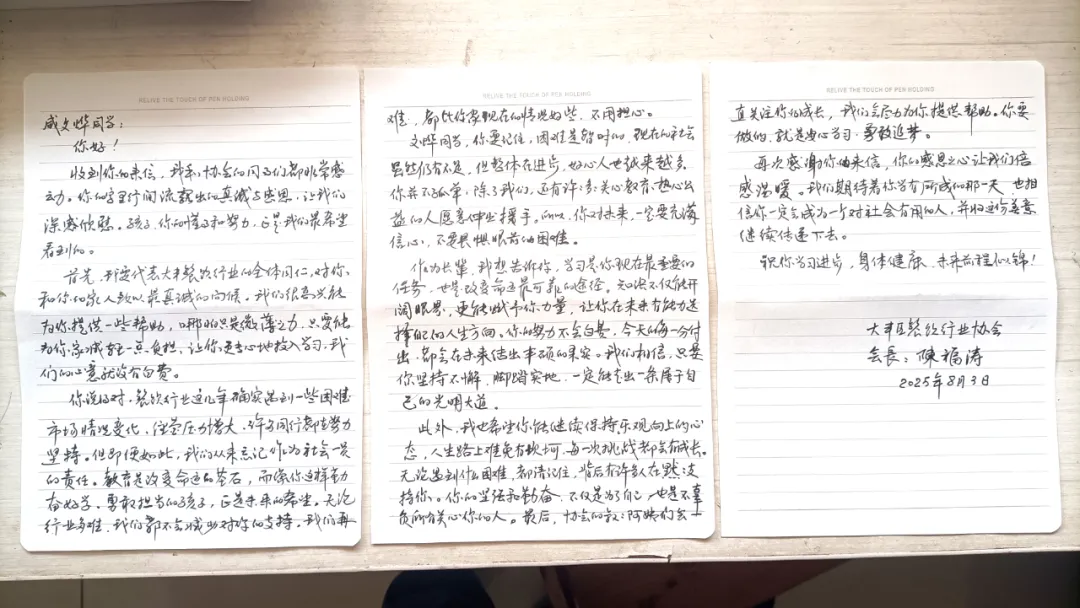 RELIVE THE TOUCH OF PEN HOLDING
戚文烨同学：
你好！
收到你的来信，我和协会的同事们都非常感
动。你的字里行间流露出的真诚与感恩，让我们
深感欣慰。孩子，你的懂事和努力，正是我们最希望
看到的。
首先，我要代表大丰餐饮行业的全体同仁，对你
和你的家人致以最真诚的问候。我们很高兴能
为你提供一些帮助，哪怕只是微薄之力，只要能
为你家减轻一点负担，让你更专心地投入学习，我
们的心意就没有白费。
你说得对，餐饮行业这几年确实遇到一些困难
市场情况变化、经营压力增大，许多同行都在努力
坚持。但即便如此，我们从未忘记作为社会一员
的责任。教育是改变命运的基石，而像你这样勤
奋好学、勇敢担当的孩子，正是未来的希望。无论
行业多难，我们都不会减少对你的支持。我们再
RELIVE THE TOUCH OF PEN HOLDING
难，都比你家现在的情况好些，不用担心。
文烨同学，你要记住，困难是暂时的。现在的社会
虽然仍有不足，但整体在进步，好心人也越来越多。
你并不孤单，除了我们，还有许许多多关心教育、热心公
益的人愿意伸出援手。所以，你对未来，一定要充满
信心，不要畏惧眼前的困难。
作为长辈，我想告诉你，学习是你现在最重要的
任务，也是改变命运最可靠的途径。知识不仅能开
阔眼界，更能赋予你力量，让你在未来有能力选
择自己的人生方向。你的努力不会白费，今天的每一分付
出，都会在未来结出丰硕的果实。我们相信，只要
你坚持不懈，脚踏实地，一定能走出一条属于自
己的光明大道。
此外，我也希望你能继续保持乐观向上的心
态，人生路上难免有坎坷，每一次挑战都会有成长。
无论遇到什么困难，都请记住，背后有许多人在默默支
持你。你的坚强和勤奋，不仅是为了自己，也是不辜
负所有关心你的人。最后，协会的叔叔阿姨们会一
RELIVE THE TOUCH OF PEN HOLDING
直关注你的成长，我们会尽力为你提供帮助。你要
做的，就是安心学习，勇敢追梦。
再次感谢你的来信，你的感恩之心让我们倍
感温暖。我们期待着你学有所成的那一天，也相
信你一定会成为一个对社会有用的人，并将这份善意
继续传递下去。
祝你学习进步，身体健康，未来前程似锦！
大丰区餐饮行业协会
会长：陳福涛
2025年8月3日